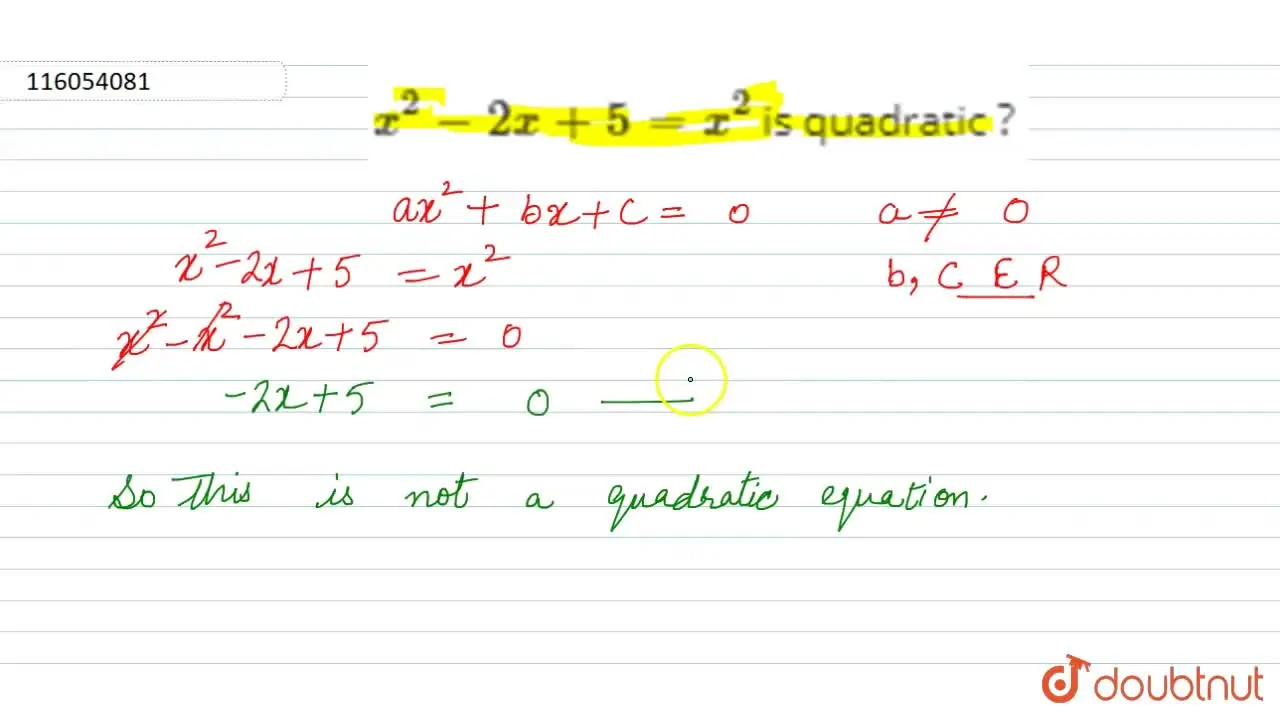 116054081
x² − 2x + 5 = x² is quadratic ?
ax² + bx + c = 0 a ≠ 0
x² - 2x + 5 = x² b, C E R
x² - x² - 2x + 5 = 0
-2x + 5 = 0
So This is not a quadratic equation.
doubtnut